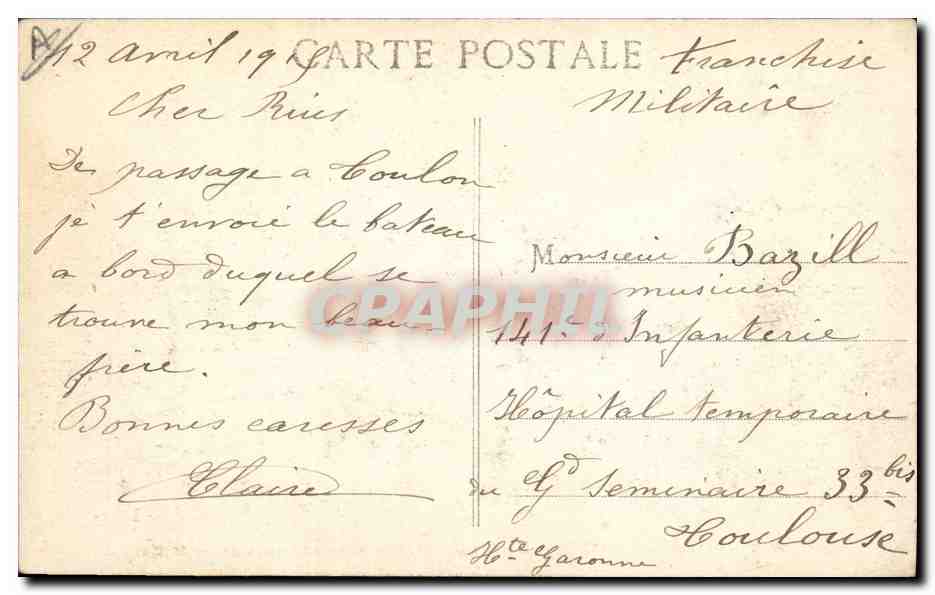 12 avril 19 CARTE POSTALE Franchise
Militaire
Cher
De passage a Toulon
je t'envoie le bateau
a bord duquel se
trouve mon beau-
frère.
Bonnes caresses
Claire
Monsieur Bazill
musicien
141e d'Infanterie
Hôpital temporaire
du Gd Seminaire 33bis
Toulouse
Hte Garonne
CPAPHIL